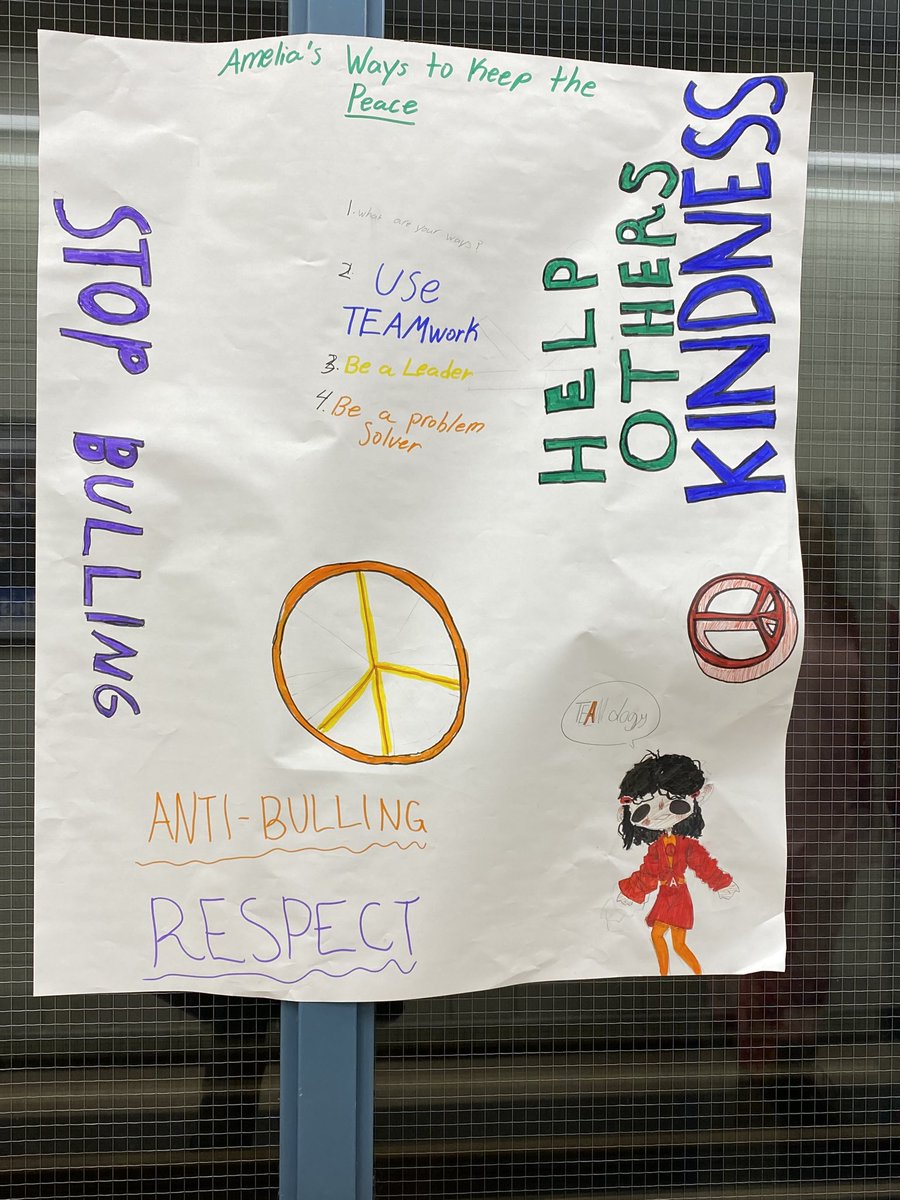 Amelia's Ways to Keep the
Peace
KINDNESS
HELP
OTHERS
STOP BULLING
1. what are your ways?
2. USe
TEAMwork
3. Be a Leader
4. Be a problem
Solver
ANTI-BULLING
RESPECT
A